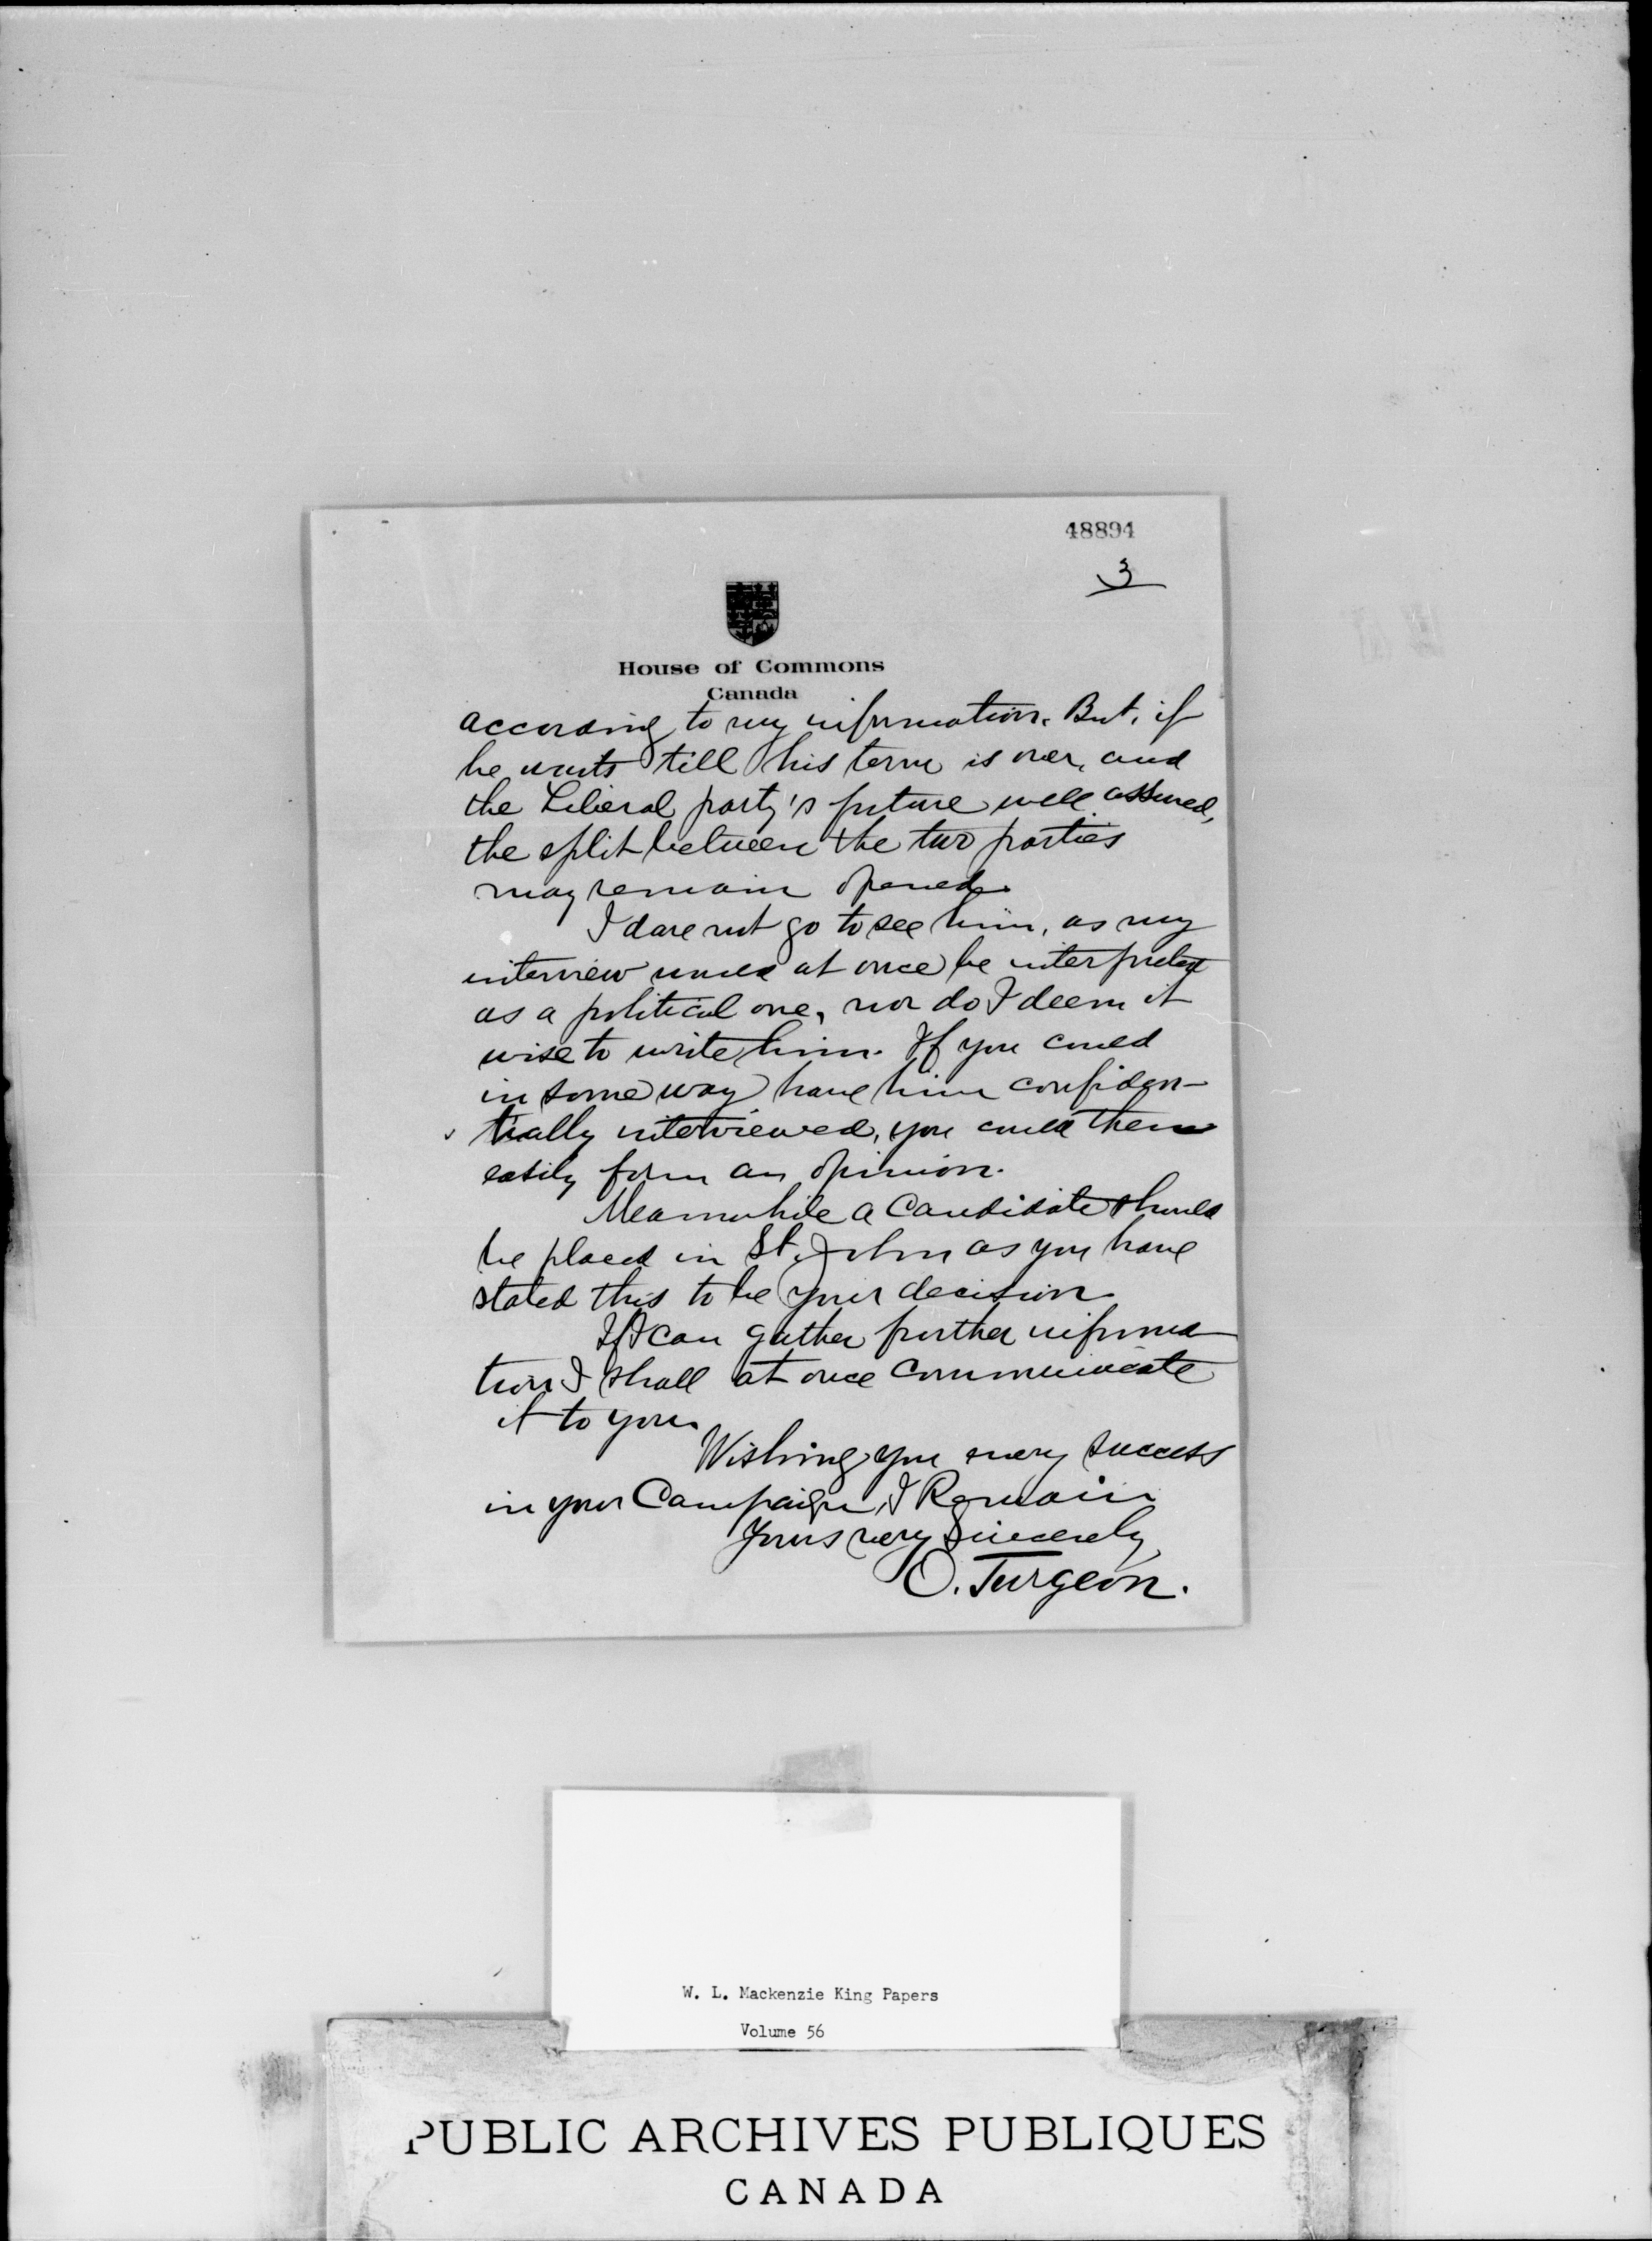 48894
3
House of Commons
Canada
according to my information. But, if
he waits till his term is over, and
the Liberal party's future well assured,
the split between the two parties
may remain opened.
I dare not go to see him, as my
interview would at once be interpreted
as a political one, nor do I deem it
wise to write him. If you could
in some way have him confiden-
tially interviewed, you could then
easily form an opinion.
Meanwhile a Candidate should
be placed in St. John as you have
stated this to be your decision.
If I can gather further informa-
tion I shall at once communicate
it to you.
Wishing you every success
in your Campaign, I Remain
Yours very Sincerely,
O. Turgeon.
W. L. Mackenzie King Papers
Volume 56
PUBLIC ARCHIVES PUBLIQUES
CANADA